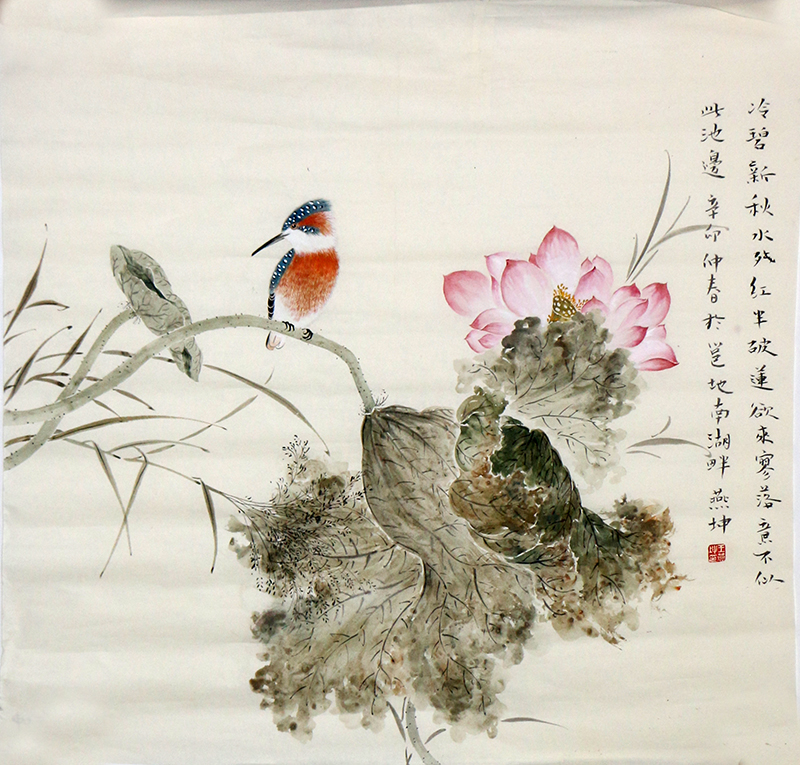 冷碧新秋水残红半破莲欲来寥落意不似
此池邊 辛卯仲春於邕地南湖畔 燕坤